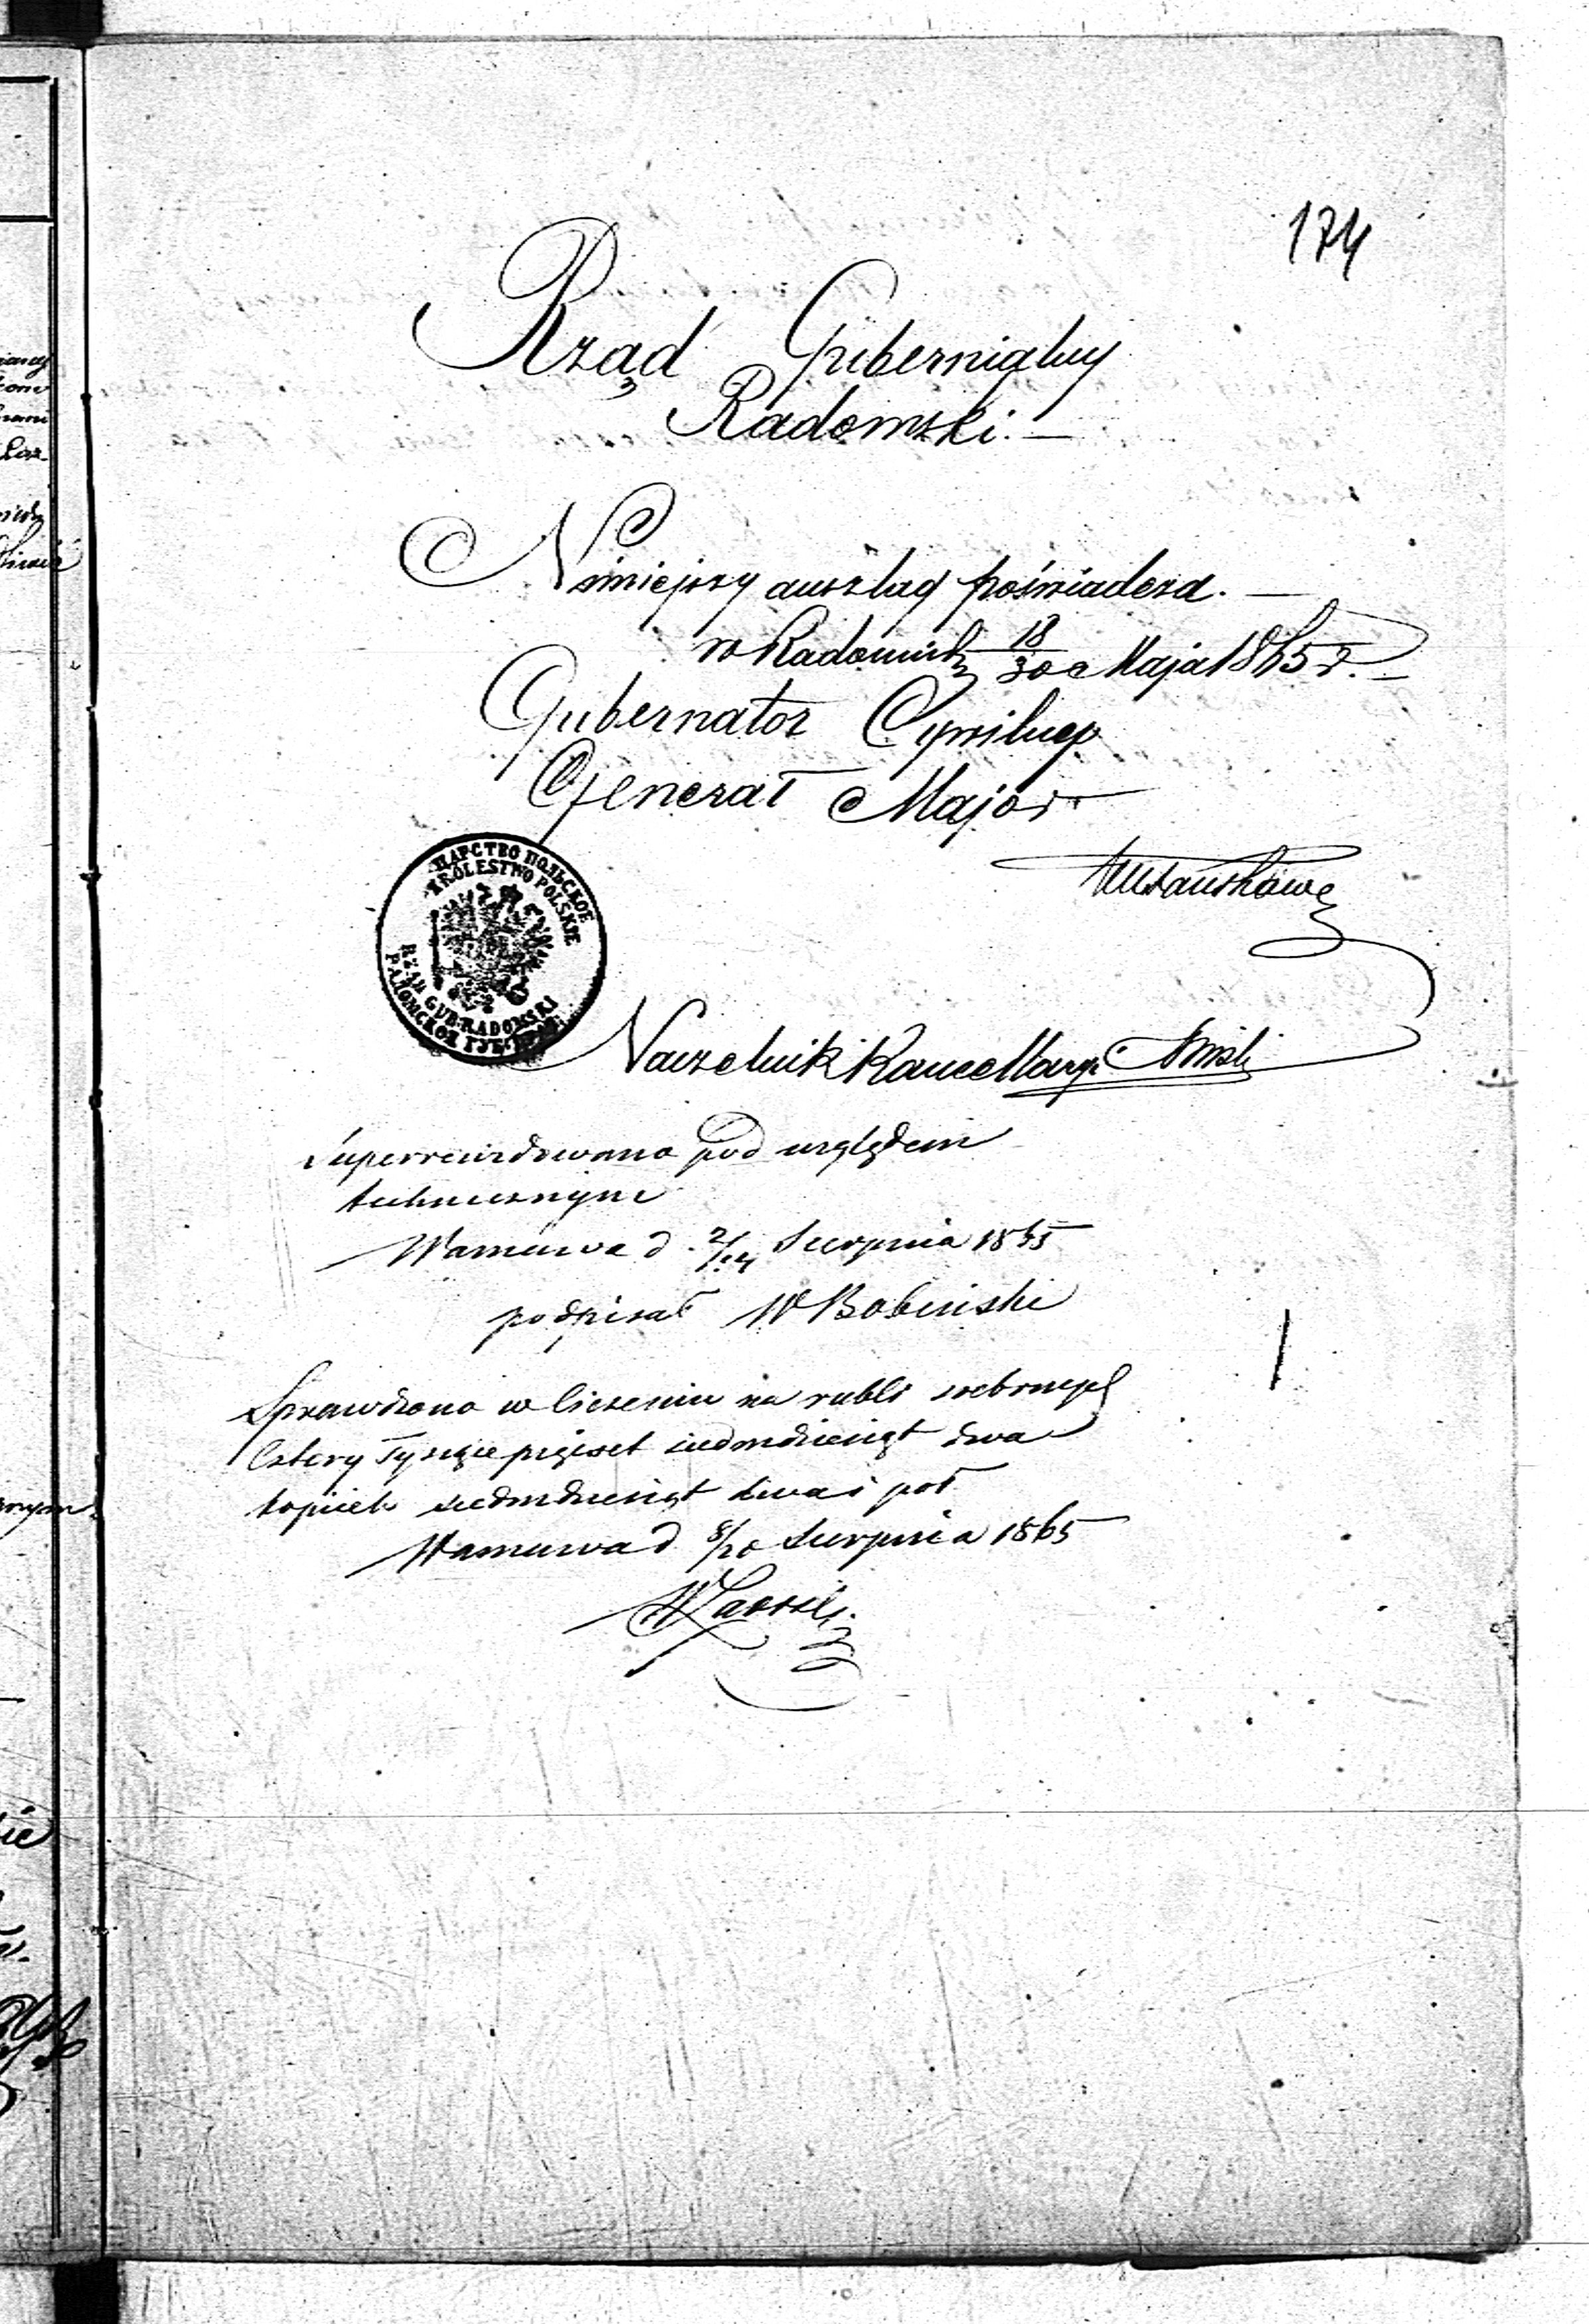 174
Rząd Gubernialny
Radomski. —
Niniejszy anszlag poświadcza. —
w Radomiu d. 18/30 Maja 1865 r. —
Gubernator Cywilny
Generał Major
ЦАРСТВО ПОЛЬСКОЕ
KRÓLESTWO POLSKIE
RZĄD GUB. RADOMSKI
РАДОМСКОЕ ГУБ.
Naczelnik Kancellaryi
Superrewidowano pod względem
technicznym
Warszawa d. 2/14 Sierpnia 1865
podpisał W Bobiński
Sprawdzono w liczeniu na rubli srebrnych
Cztery Tysiące pięćset siedmdziesiąt dwa
kopiiek siedmdziesiąt dwa i pół
Warszawa d 8/20 Sierpnia 1865